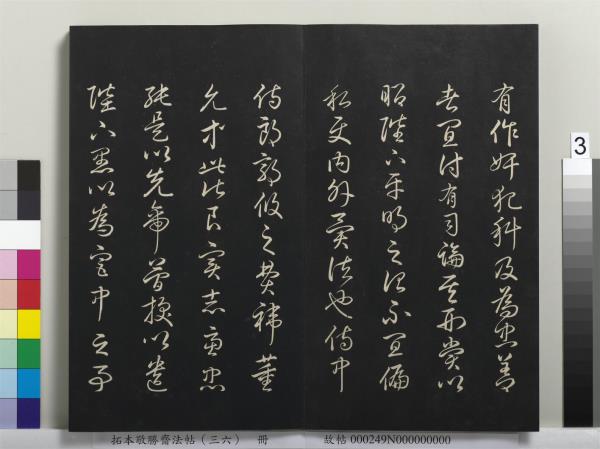 有作奸犯科及為忠善
者宜付有司論其刑賞以
昭陛下平明之治不宜偏
私使內外異法也侍中
侍郎郭攸之費禕董
允等此皆良實志慮忠
純是以先帝簡拔以遺
陛下愚以為宮中之事
3
拓本敬勝齋法帖（三六） 冊 故帖 000249N000000000